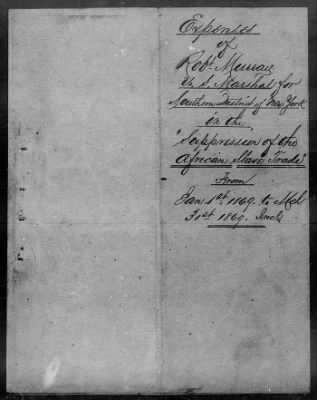 Expenses
of
Robt. Murray
U. S. Marshal for
Southern District of New York
in the
"Suppression of the
African Slave Trade"
From
Jan 1st 1869. to Mch
31st 1869. Incl.